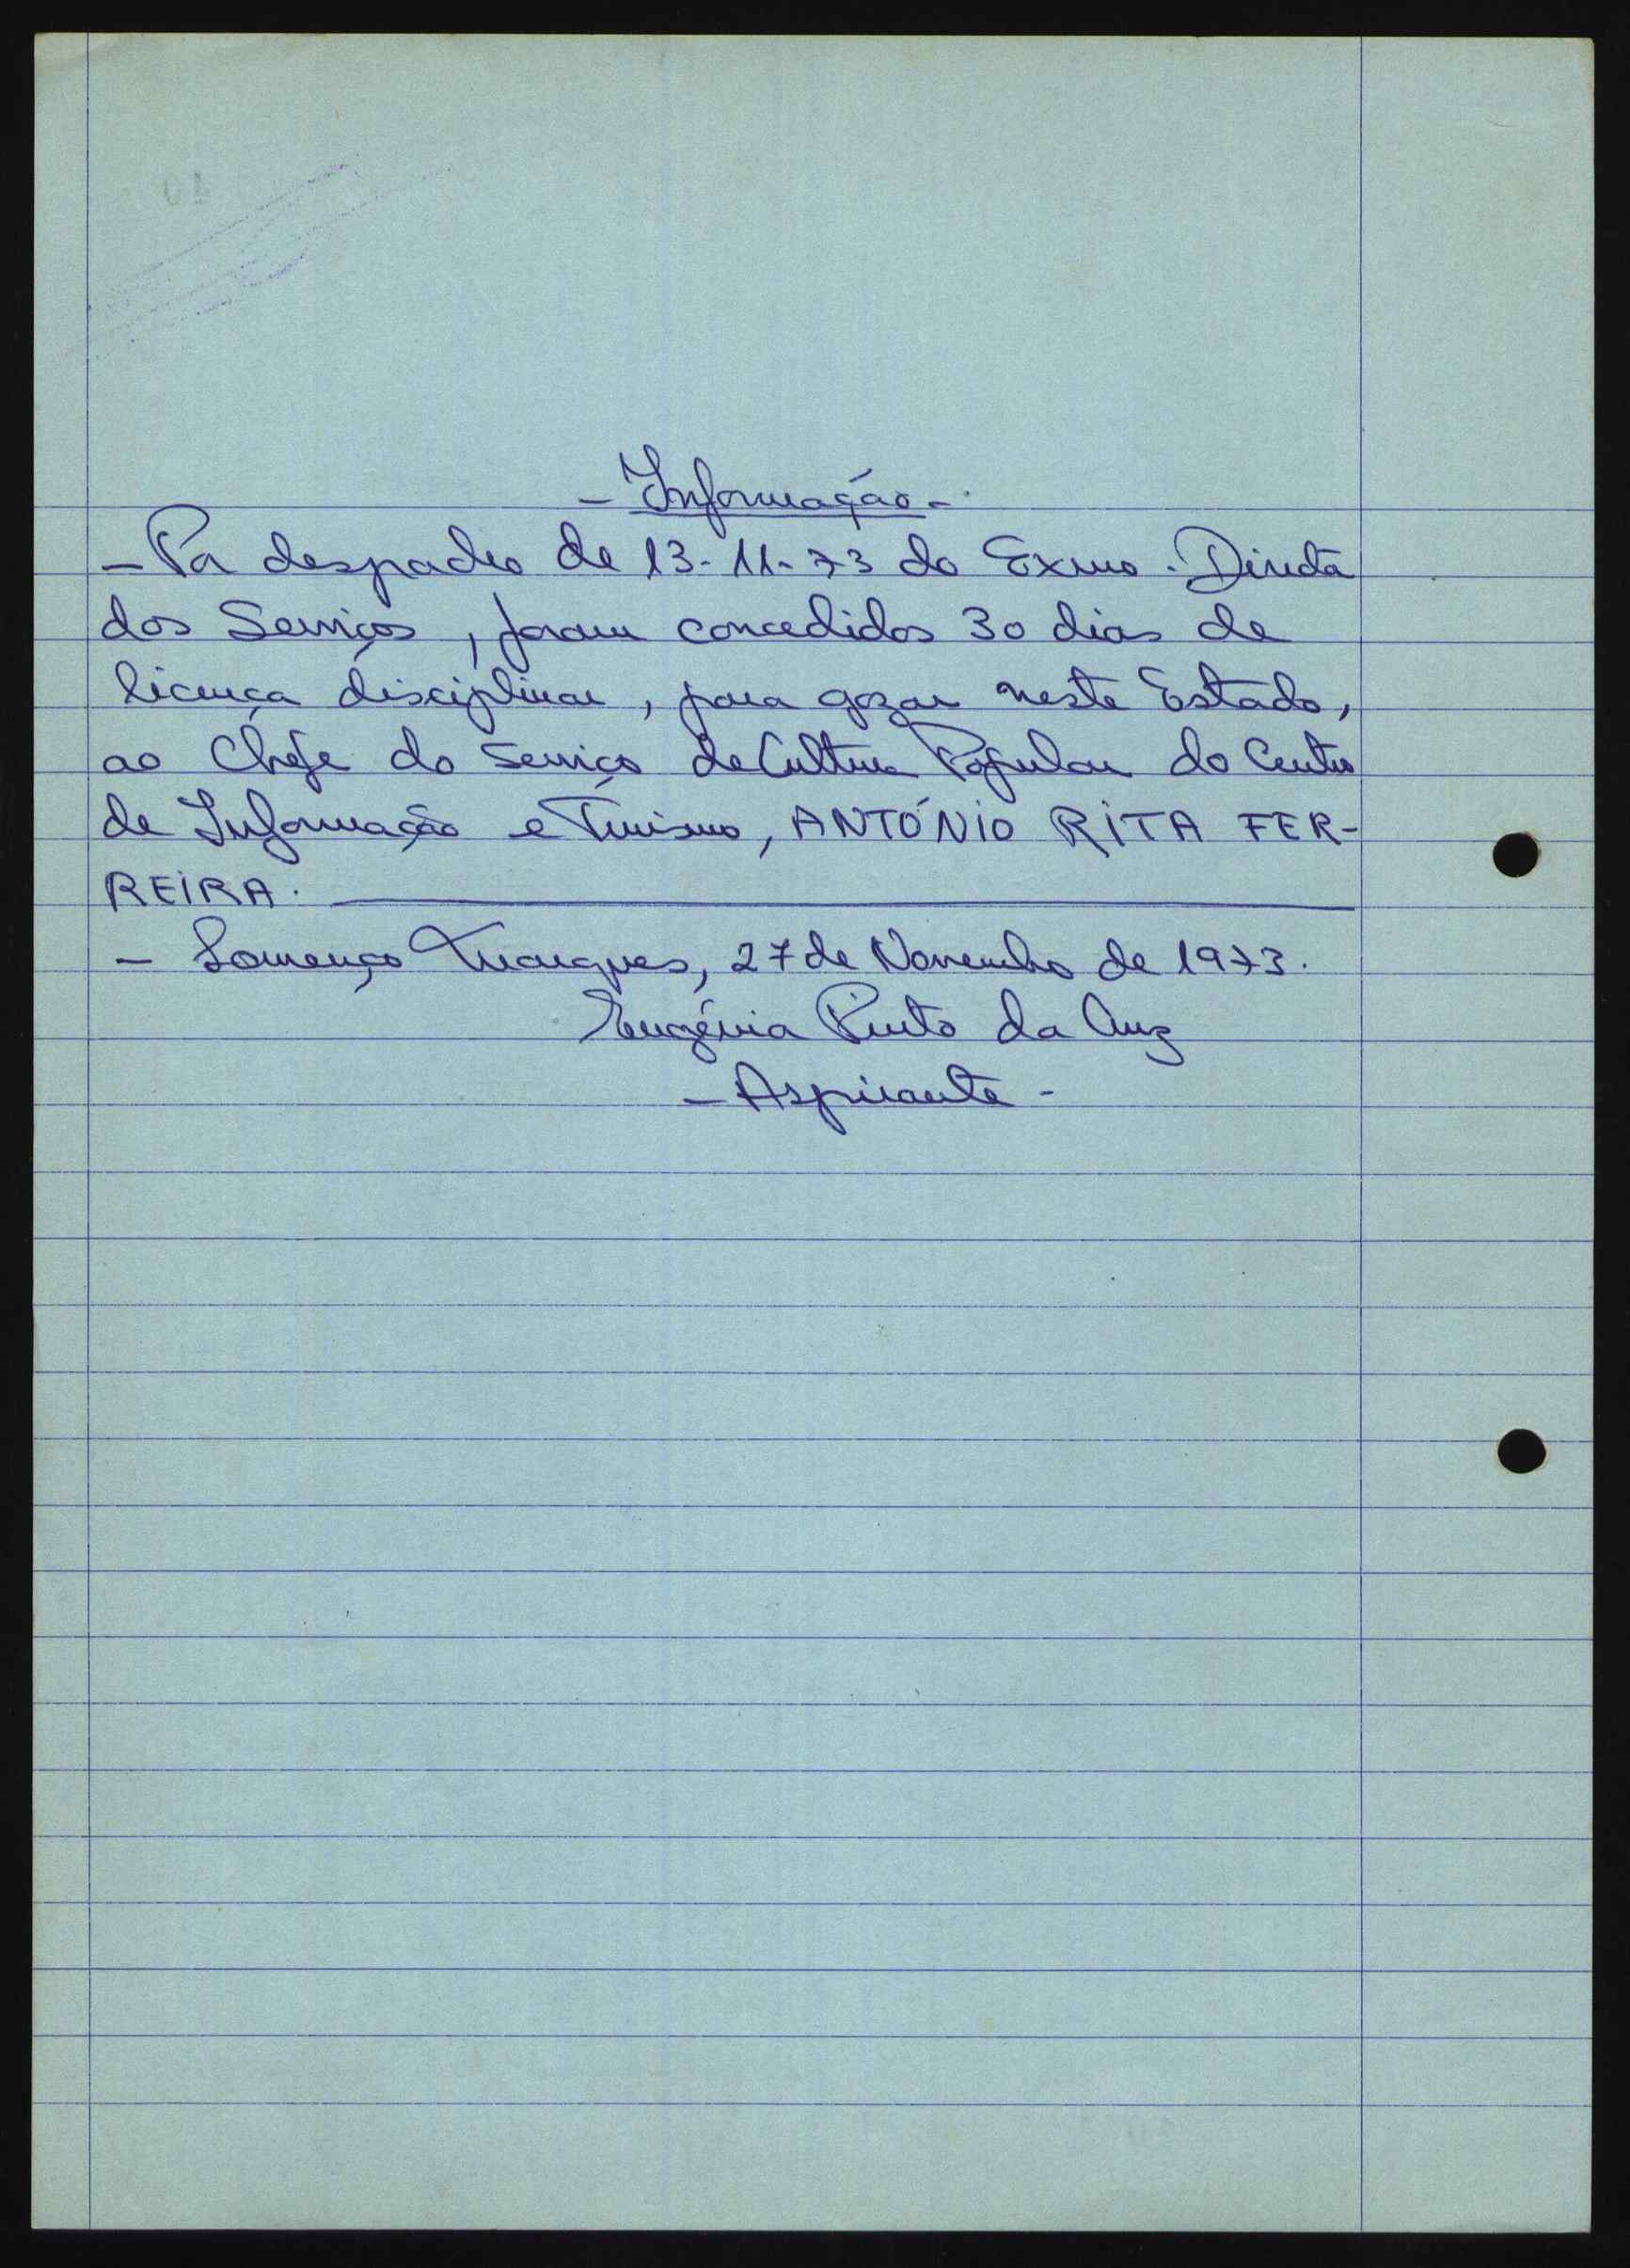 - Informação -
- Por despacho de 13-11-73 do Exmo. Director
dos Serviços, foram concedidos 30 dias de
licença disciplinar, para gozar neste Estado,
ao Chefe do Serviço de Cultura Popular do Centro
de Informação e Turismo, ANTÓNIO RITA FER-
REIRA.
- Lourenço Marques, 27 de Novembro de 1973.
Eugénia Pinto da Cruz
- Aspirante -